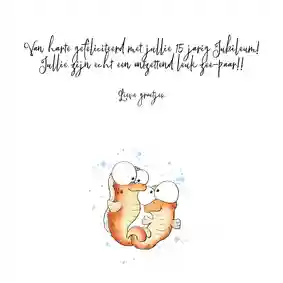 Van harte gefeliciteerd met jullie 15 jarig Jubileum!
Jullie zijn echt een ontzettend leuk zee-paar!!
Lieve groetjes